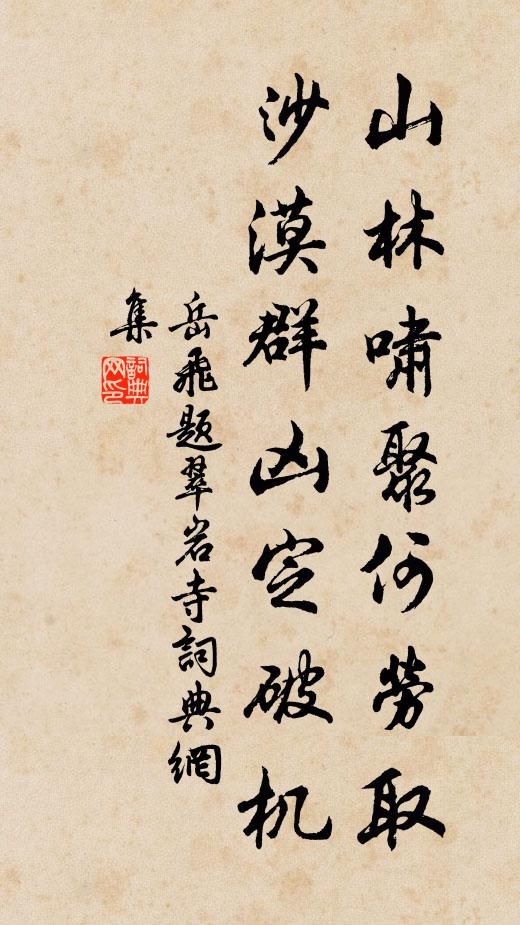 山林啸聚何劳取
沙漠群凶定破机
岳飛题翠岩寺詞典網
集
詞典
网印